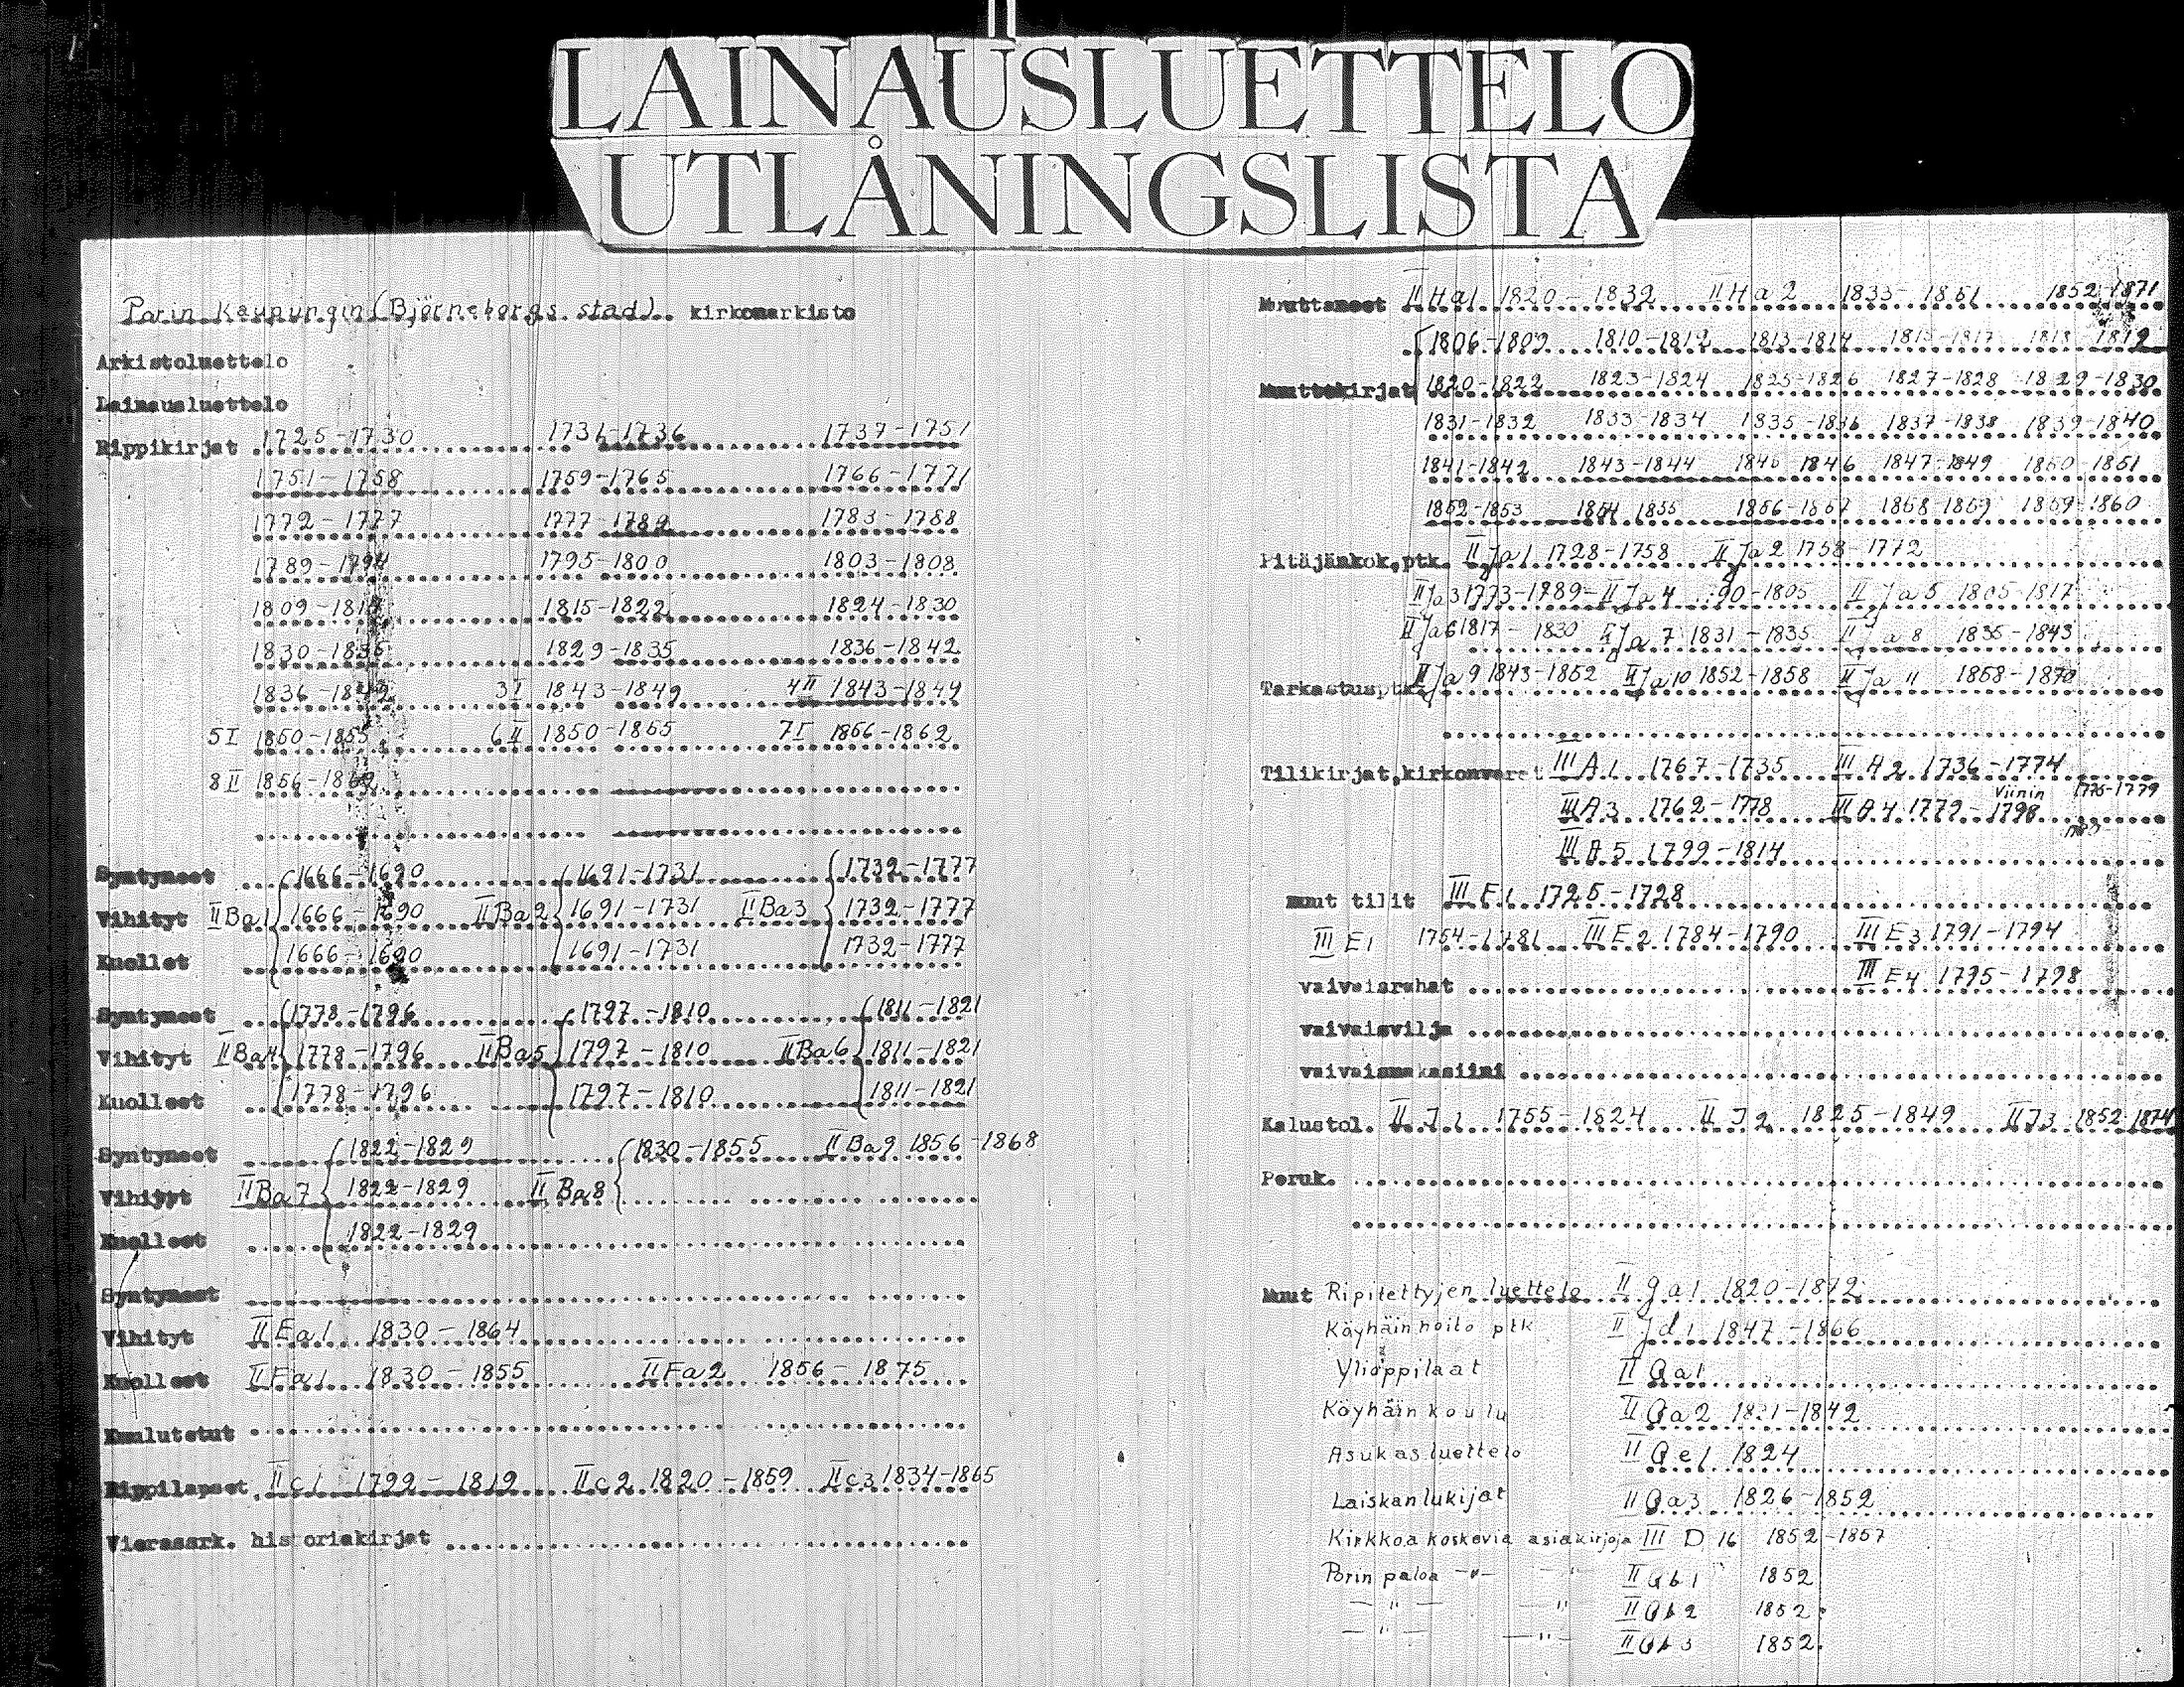 LAINAUSLUETTELO
UTLÅNINGSLISTA
Porin Kaupungin (Björneborgs stad) kirkonarkisto
Arkistoluettelo
Lainausluettelo
Rippikirjat 1725-1730 1731-1736 1737-1751
1751-1758 1759-1765 1766-1771
1772-1777 1777-1789 1783-1788
1789-1794 1795-1800 1803-1808
1809-1814 1815-1822 1824-1830
1830-1835 1829-1835 1836-1842
1836-1842 3 I 1843-1849 4 II 1843-1849
5 I 1850-1855 6 II 1850-1855 7 I 1856-1862
8 II 1856-1862
Syntyneet 1666-1690 1691-1731 1732-1777
Vihityt II Ba 1 1666-1690 II Ba 2 1691-1731 II Ba 3 1732-1777
Kuollet 1666-1690 1691-1731 1732-1777
Syntyneet 1778-1796 1797-1810 1811-1821
Vihityt II Ba 4 1778-1796 II Ba 5 1797-1810 II Ba 6 1811-1821
Kuolleet 1778-1796 1797-1810 1811-1821
Syntyneet 1822-1829 1830-1855 II Ba 9 1856-1868
Vihityt II Ba 7 1822-1829 II Ba 8
Kuolleet 1822-1829
Syntyneet
Vihityt II Ea 1 1830-1864
Kuolleet II Fa 1 1830-1855 II Fa 2 1856-1875
Kuulutetut
Rippilapset II c 1 1799-1819 II c 2 1820-1859 II c 3 1834-1865
Vierasark. historiakirjat
Muuttaneet II Ha 1 1820-1832 II Ha 2 1833-1851 1852-1871
1806-1809 1810-1812 1813-1814 1815-1817 1818 1819
Muuttokirjat 1820-1822 1823-1824 1825-1826 1827-1828 1829-1830
1831-1832 1833-1834 1835-1836 1837-1838 1839-1840
1841-1842 1843-1844 1845 1846 1847-1849 1850 1851
1852-1853 1854 1855 1856-1857 1858-1859 1859-1860
Pitäjänkok.ptk. II Ja 1 1728-1758 II Ja 2 1758-1772
II Ja 3 1773-1789 - II Ja 4 90-1805 II Ja 5 1805-1817
II Ja 6 1817-1830 II Ja 7 1831-1835 II Ja 8 1835-1843
Tarkastusptk. II Ja 9 1843-1852 II Ja 10 1852-1858 II Ja 11 1858-1870
Tilikirjat, kirkonvarat III A 1 1767-1735 III A 2 1736-1774
Viinin 1775-1779
III A 3 1762-1778 III A 4 1779-1798
III A 5 1799-1814
muut tilit III E 1 1725-1728
III E 1 1754-1781 III E 2 1784-1790 III E 3 1791-1794
vaivaisrahat III E 4 1795-1798
vaivaisvilja
vaivaismakasiini
Kalustol. II I 1 1755-1824 II I 2 1825-1849 II I 3 1852 1874
Peruk.
Muut Ripitettyjen luettelo II ga 1 1820-1872
Köyhäinhoito ptk II Jd 1 1847-1866
Ylioppilaat II Ga 1
Köyhäin koulu II Ga 2 1842
Asukasluettelo II Ge 1 1824
Laiskanlukijat II Ga 3 1826-1852
Kirkkoa koskevia asiakirjoja III D 16 1852-1857
Porin paloa -"- II Gb 1 1852
-"- -"- II Gb 2 1852
-"- -"- II Gb 3 1852.